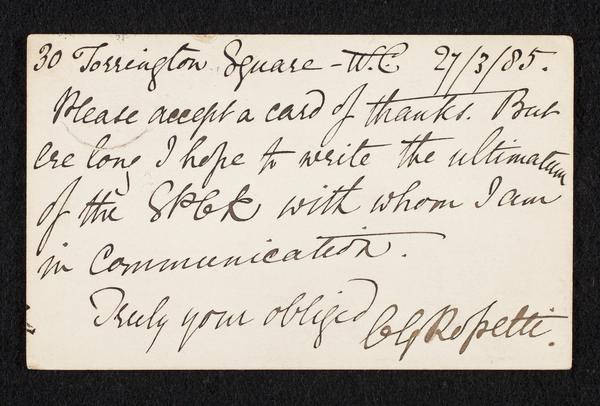 30 Torrington Square - W.C. 27/3/85.
Please accept a card of thanks. But
ere long I hope to write the ultimatum
of the SPCK with whom I am
in communication.
Truly your obliged
CGRossetti.